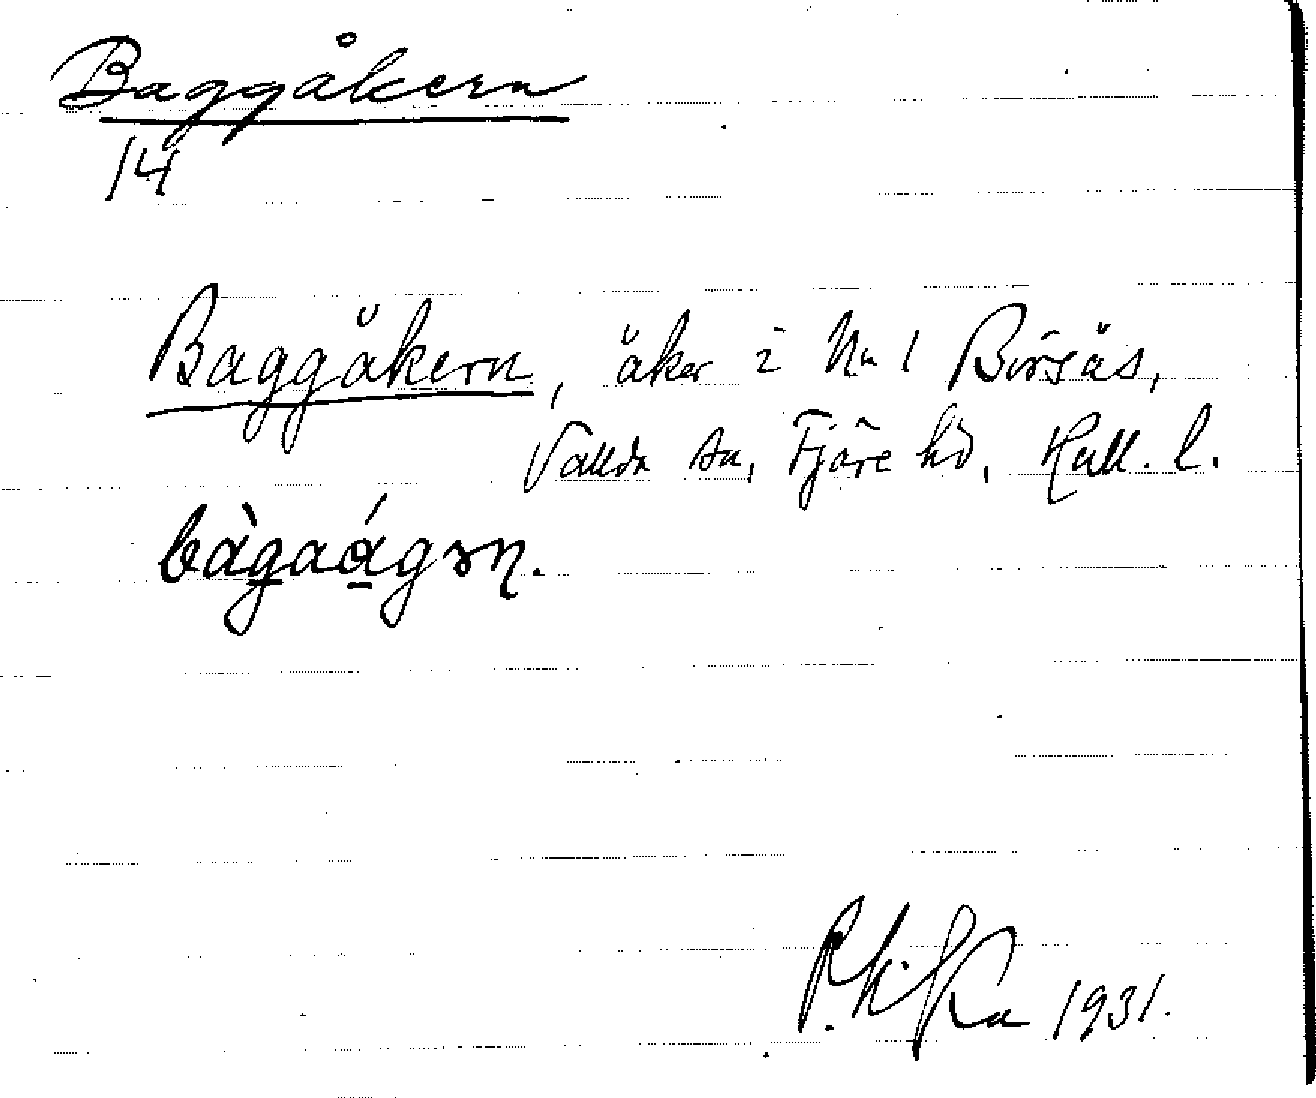 Baggåkern
14
Baggåkern, åker i No 1 Börsås,
Vallda sn, Fjäre hd, Hall. l.
bàgaágən.
1931.